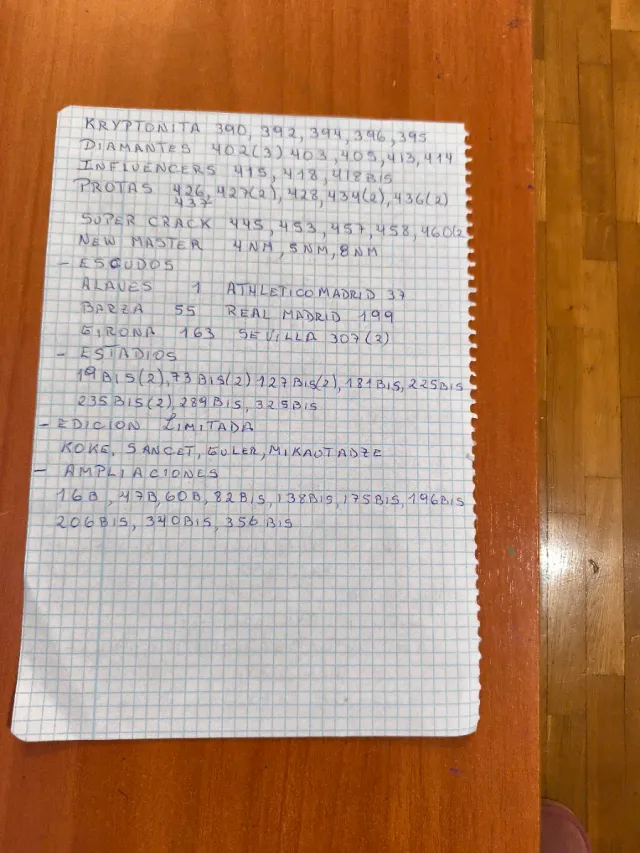 KRYPTONITA 390, 392, 394, 396, 395
DIAMANTES 402(3) 403, 405, 413, 414
INFLUENCERS 415, 418, 418BIS
PROTAS 426, 427(2), 428, 434(2), 436(2)
437
SUPER CRACK 445, 453, 457, 458, 460(2
NEW MASTER 4NM, 5NM, 8NM
- ESCUDOS
ALAVES 1 ATHLETICO MADRID 37
BARZA 55 REAL MADRID 199
GIRONA 163 SEVILLA 307(2)
- ESTADIOS
19BIS(2), 73BIS(2) 127BIS(2), 181BIS, 225BIS
235BIS(2), 289BIS, 325BIS
- EDICION LIMITADA
KOKE, SANCET, GULER, MIKAUTADZE
- AMPLIACIONES
16B, 47B, 60B, 82BIS, 138BIS, 175BIS, 196BIS
206BIS, 340BIS, 356BIS